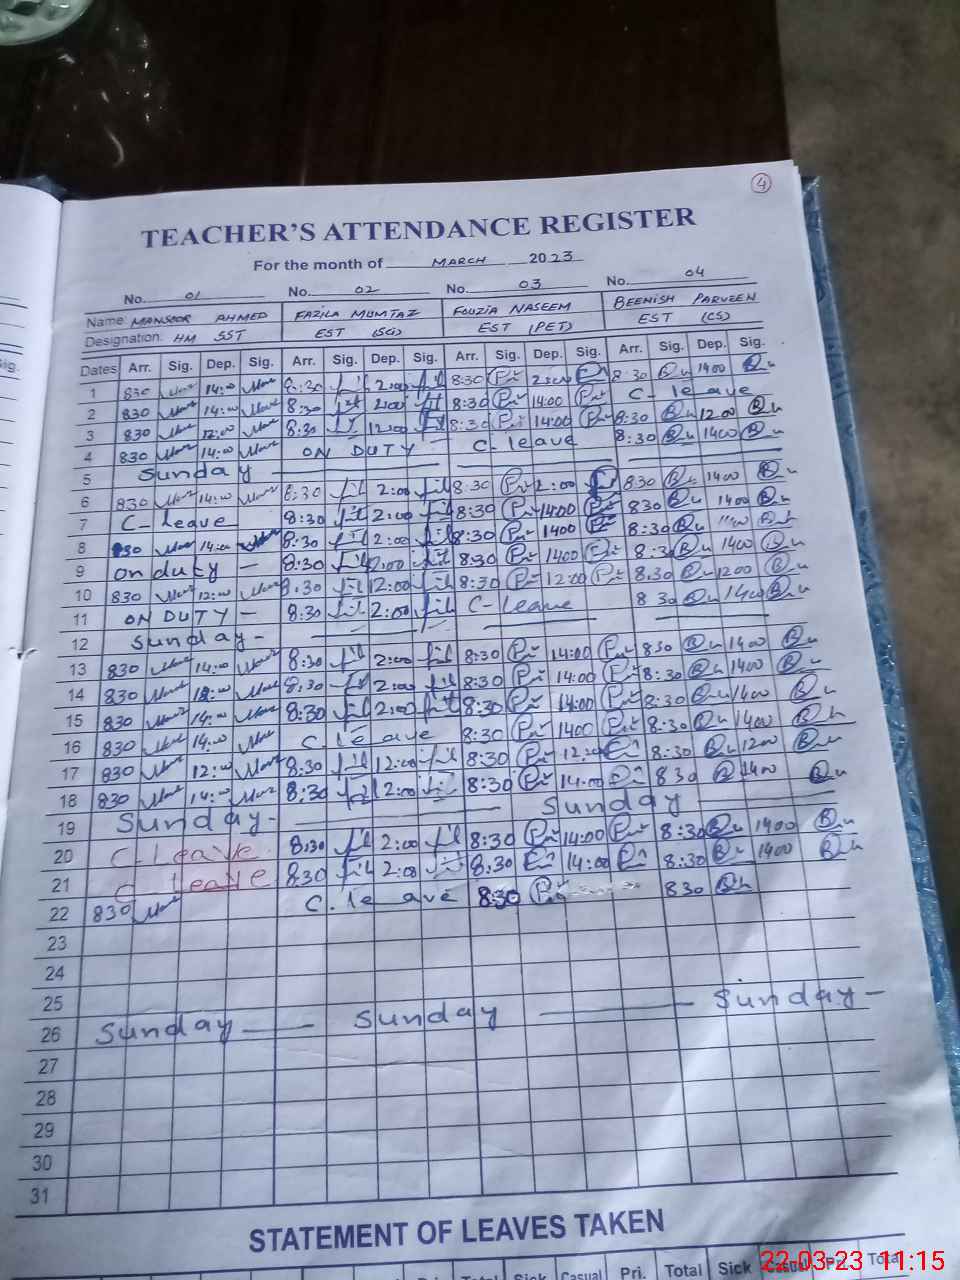 4
TEACHER'S ATTENDANCE REGISTER
For the month of MARCH 2023
No. 01 No. 02 No. 03 No. 04
Name: MANSOOR AHMED FAZILA MUMTAZ FOUZIA NASEEM BEENISH PARVEEN
Designation: HM SST EST (SG) EST (PET) EST (CS)
Dates Arr. Sig. Dep. Sig. Arr. Sig. Dep. Sig. Arr. Sig. Dep. Sig. Arr. Sig. Dep. Sig.
1 830 14:00 8:30 2:00 8:30 2:00 8:30 1400
2 830 14:00 8:30 2:00 8:30 14:00 C- leave
3 830 12:00 8:30 12:00 8:30 14:00 8:30 1200
4 830 14:00 ON DUTY C- leave 8:30 1400
5 Sunday
6 830 14:00 8:30 2:00 8:30 2:00 8:30 1400
7 C- leave 8:30 2:00 8:30 1400 830 1400
8 830 14:00 8:30 2:00 8:30 1400 8:30
9 on duty - 8:30 2:00 8:30 1400 8:30 1400
10 830 12:00 8:30 12:00 8:30 12:00 8:30 1200
11 ON DUTY - 8:30 2:00 C- leave 8 30 1400
12 Sunday -
13 830 14:00 8:30 2:00 8:30 14:00 830 1400
14 830 8:30 2:00 8:30 14:00 8:30 1400
15 830 14:00 8:30 2:00 8:30 14:00 8:30 1400
16 830 14:00 C. leave 8:30 1400 8:30 1400
17 830 12:00 8:30 12:00 8:30 8:30 1200
18 830 14:00 8:30 2:00 8:30 14:00 830 1400
19 Sunday - Sunday
20 C- Leave 8:30 2:00 8:30 14:00 8:30 1400
21 C Leave 8:30 2:00 8:30 14:00 8:30 1400
22 830 C. leave 8:30 830
23
24
25
26 Sunday Sunday Sunday -
27
28
29
30
31
STATEMENT OF LEAVES TAKEN
Pri. Total Sick Casual Pri. Total Sick Casual Pri. Total
22-03-23 11:15